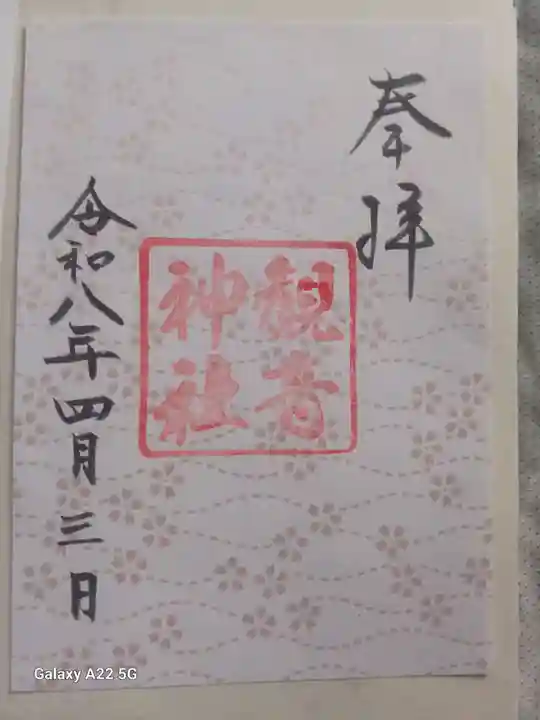 奉拝
観音
神社
令和八年四月三日
Galaxy A22 5G